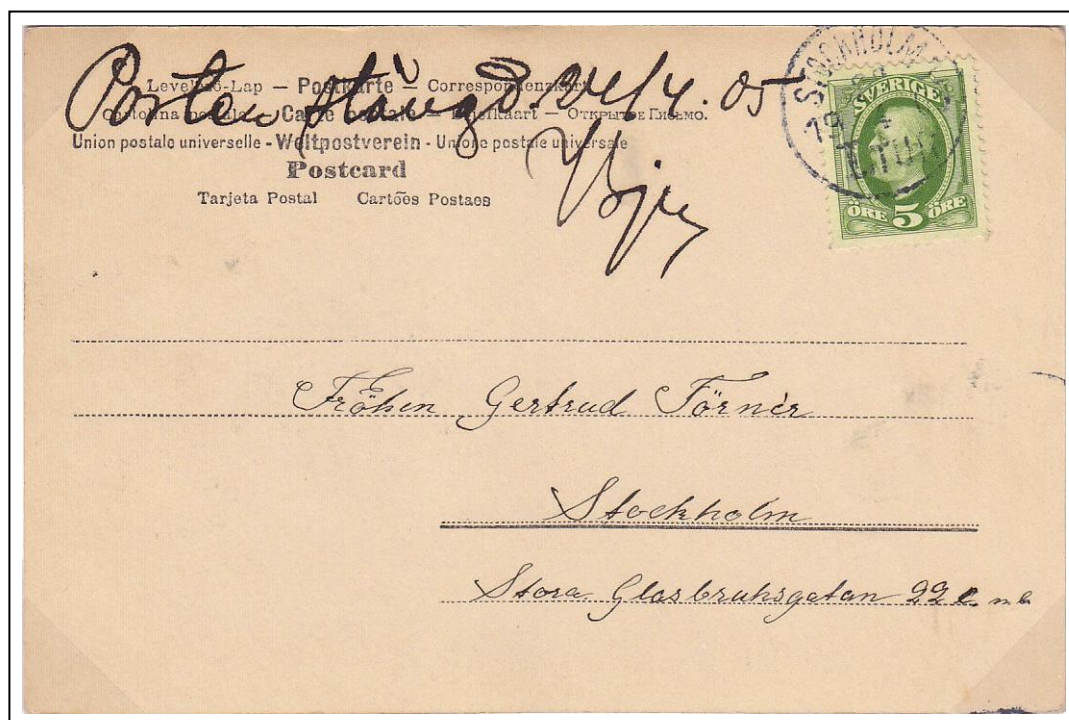 Porten stängd. 24/4. 05
Levelező-Lap – Postkarte – Correspondenzkarte
Carte postale
Union postale universelle - Weltpostverein - Unione postale universale
Postcard
Tarjeta Postal Cartões Postaes
STOCKHOLM
SVERIGE
ÖRE 5 ÖRE
Fröken Gertrud Törnér
Stockholm
Stora Glasbruksgatan 22